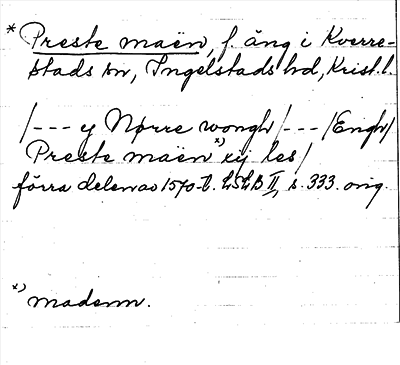 * Preste maën, f. äng i Kverre-
stads sn, Ingelstads hd, Krist. l.
/--- y Nørre wongh /--- /Engh/
Preste maën x) xij les/
förra delen av 1570-t. LSLB II, s. 333. orig.
x) madenn.